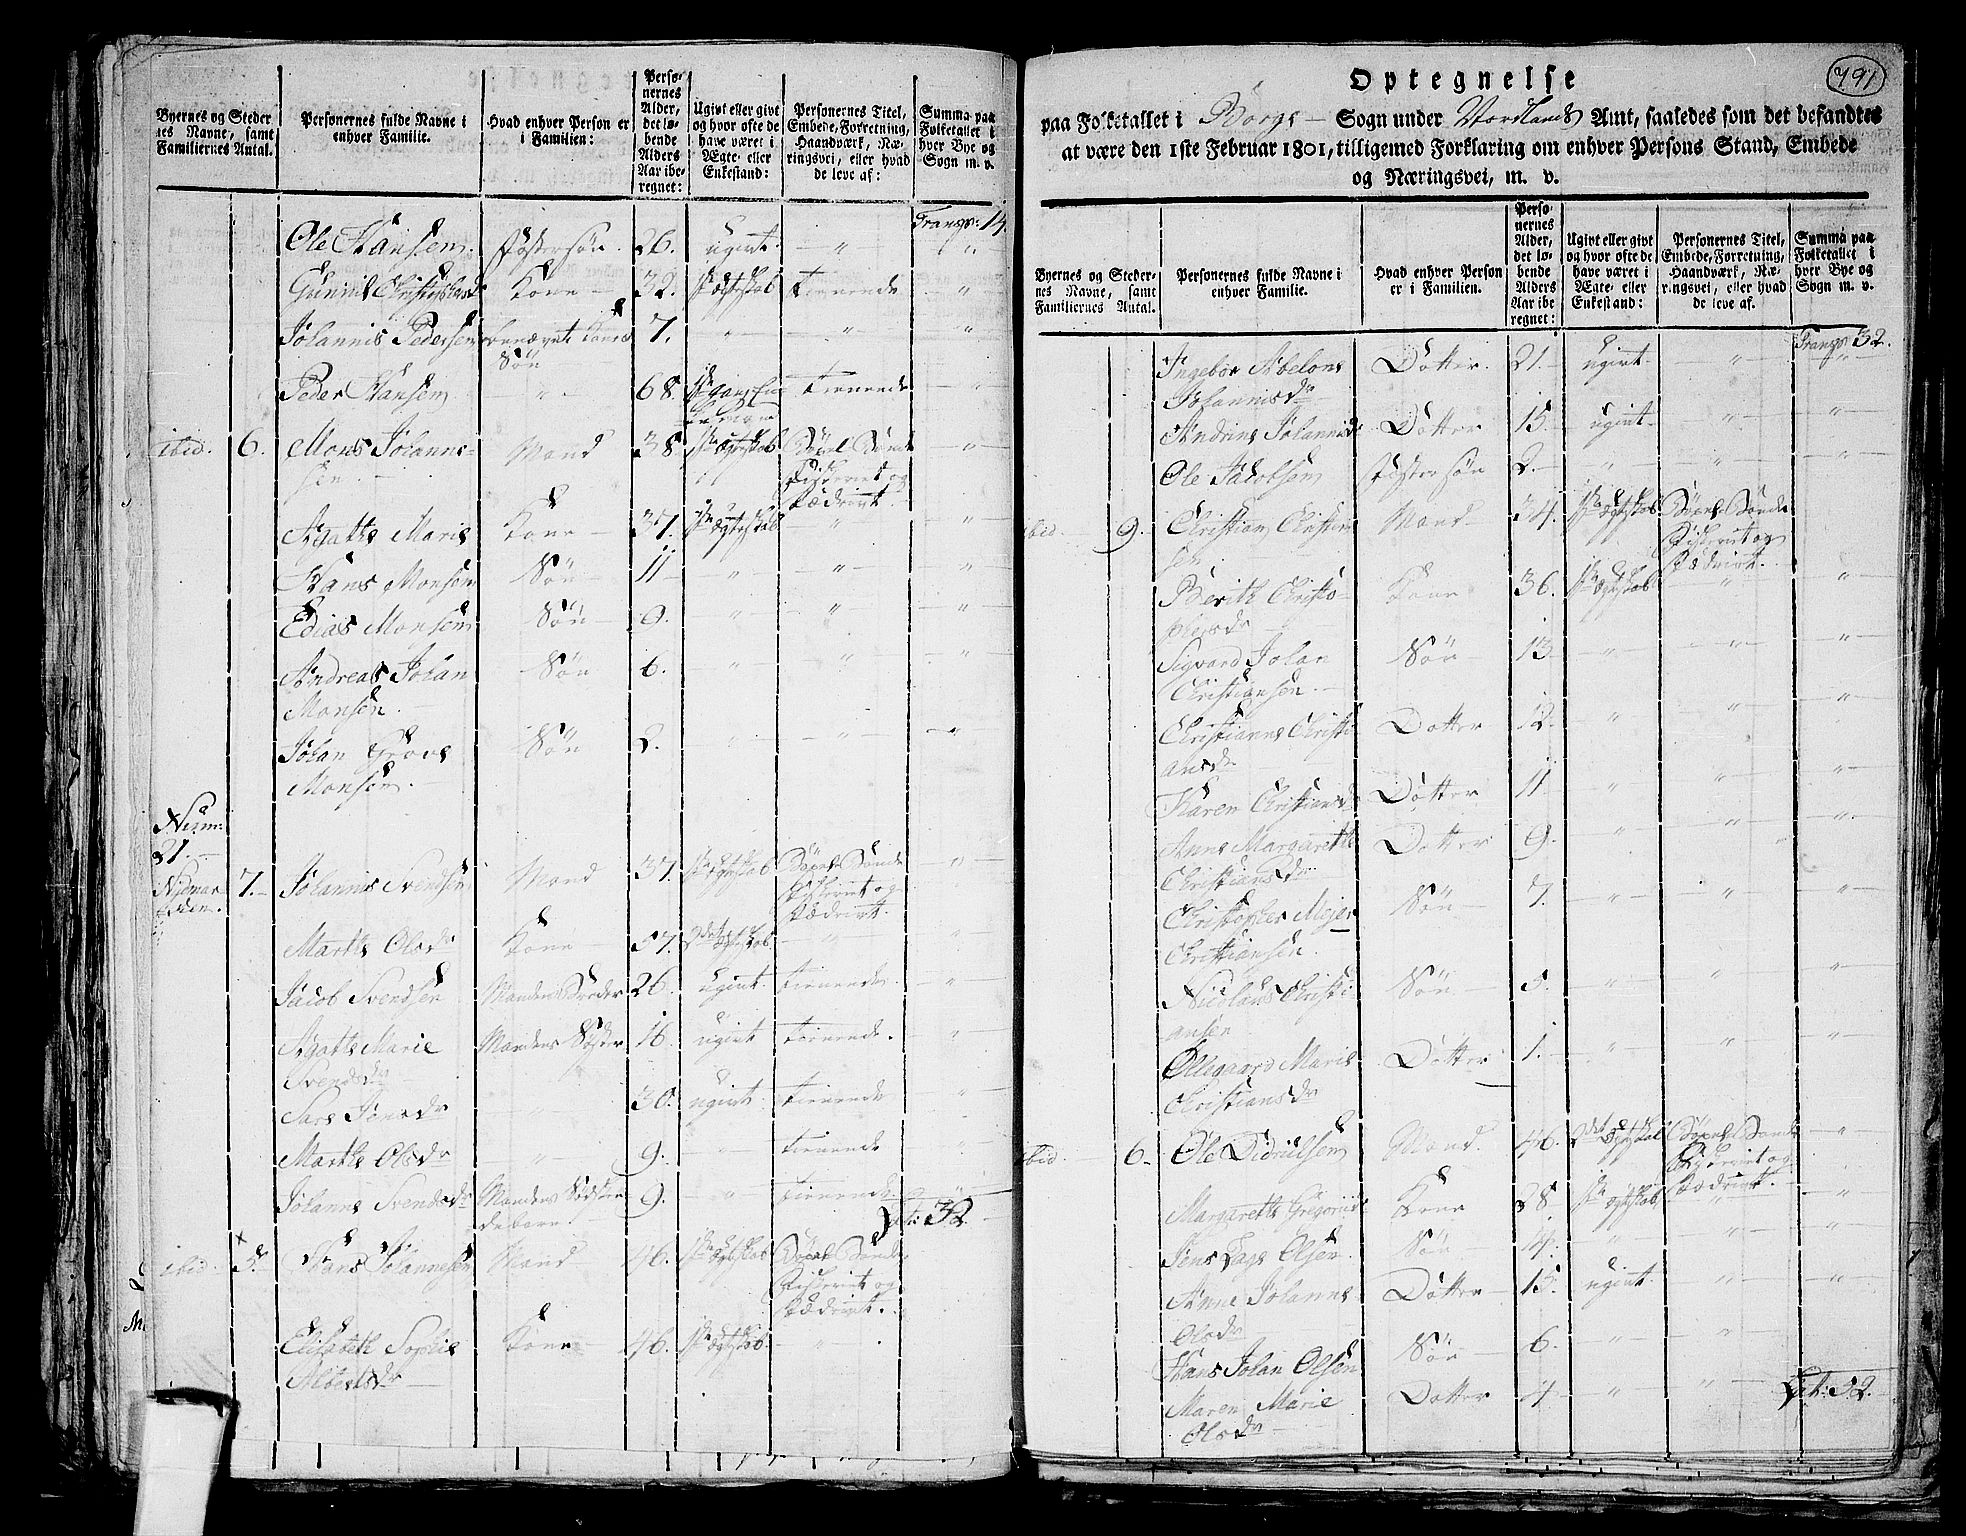 Byernes og Steder
nes Navne, samt
Familiernes Antal.
Personernes fulde Navne i
enhver Familie.
Hvad enhver Person er
i Familien:
Perso-
nernes
Alder,
det lø-
bende
Alders
Aar ibe-
regnet:
Ugivt eller givt
og hvor ofte de
have været i
Ægte- eller
Enkestand:
Personernes Titel,
Embede, Forretning,
Haandværk, Næ-
ringsvei, eller hvad
de leve af:
Summa paa
Folketallet i
hver Bye og
Sogn m. v.
Transp: 14.
Ole Hansen Fostersøn 26. ugivt
Konne 32. 1ste Ægteskab tienende
Johannis Pedersen Konnes 7.
Søn
Peder Hansen 68. tienende
ibid. 6. Mons Johannes- Mand 38. 1ste Ægteskab
sen.
Fiskeriet og
Agathe Marie Kone 37. 1ste Ægteskab
Hans Monsen Søn 11
Edias Monsen Søn 9.
Andreas Johan Søn 6.
Monsen.
Johan Søn 2.
Monsen.
Num:
21.
7. Johannis Svendsen Mand 37. 1ste Ægteskab
Fiskeriet og
Marthe Olsdr Kone 57. 2det Ægteskab
Jacob Svendsen Mandens Broder 26. ugivt tienende
Agathe Marie Mandens Søster 16 ugivt tienende.
Svendsdr
30. ugivt tienende
Marthe Olsdr 9. tienende
Johanne Svendsdr Mandens 9. tienende
Lat: 32
ibid 5. Hans Johannesen Mand 46. 1ste Ægteskab
Fiskeriet og
Elisabeth Sophie Kone 46. 1ste Ægteskab.
791
Optegnelse
paa Folketallet i Borge Sogn under Nordlands Amt, saaledes som det befandtes
at være den 1ste Februar 1801, tilligemed Forklaring om enhver Persons Stand, Embede
og Næringsvei, m. v.
Byernes og Steder-
nes Navne, samt
Familiernes Antal.
Personernes fulde Navne i
enhver Familie.
Hvad enhver Person
er i Familien.
Perso-
nernes
Alder,
det lø-
bende
Alders
Aar ibe
regnet:
Ugivt eller givt
og hvor ofte de
have været i
Ægte- eller
Enkestand:
Personernes Titel,
Embede, Forretning,
Haandværk, Næ-
ringsvei, eller hvad
de leve af.
Summa paa
Folketallet i
hver Bye og
Sogn m. v.
Transp 32.
Ingebor Abelone Dotter. 21. ugivt
Johannisdr
Johannisdr Dotter 15. ugivt
Ole Jacobsen Fostersøn 2.
ibid. 9. Christian Christian Mand 34. 1ste Ægteskab
sen
Fiskeriet og
Berith Christo- Kone 36. 1ste Ægteskab
phersdr
Sigvard Johan Søn 13
Christiansen.
Christianne Christi Dotter 12.
ansdr
Karen Christiansdr Dotter 11
Anne Margarethe Dotter 9.
Christiansdr
Christopher Mejer Søn 7.
Christiansen.
Nicolaus Christi Søn 5.
ansen
Ollegaard Marie Dotter 1.
Christiansdr
ibid 6. Ole Didriksen Mand. 46. 2det Ægteskab
Fiskeriet og
Margarethe Kone 28 1ste Ægteskab
Jens Olsen. Søn 4.
Anne Johanne Dotter 15. ugivt
Olsdr
Hans Johan Olsen Søn 6.
Maren Marie Dotter 4
Olsdr
Lat: 52.